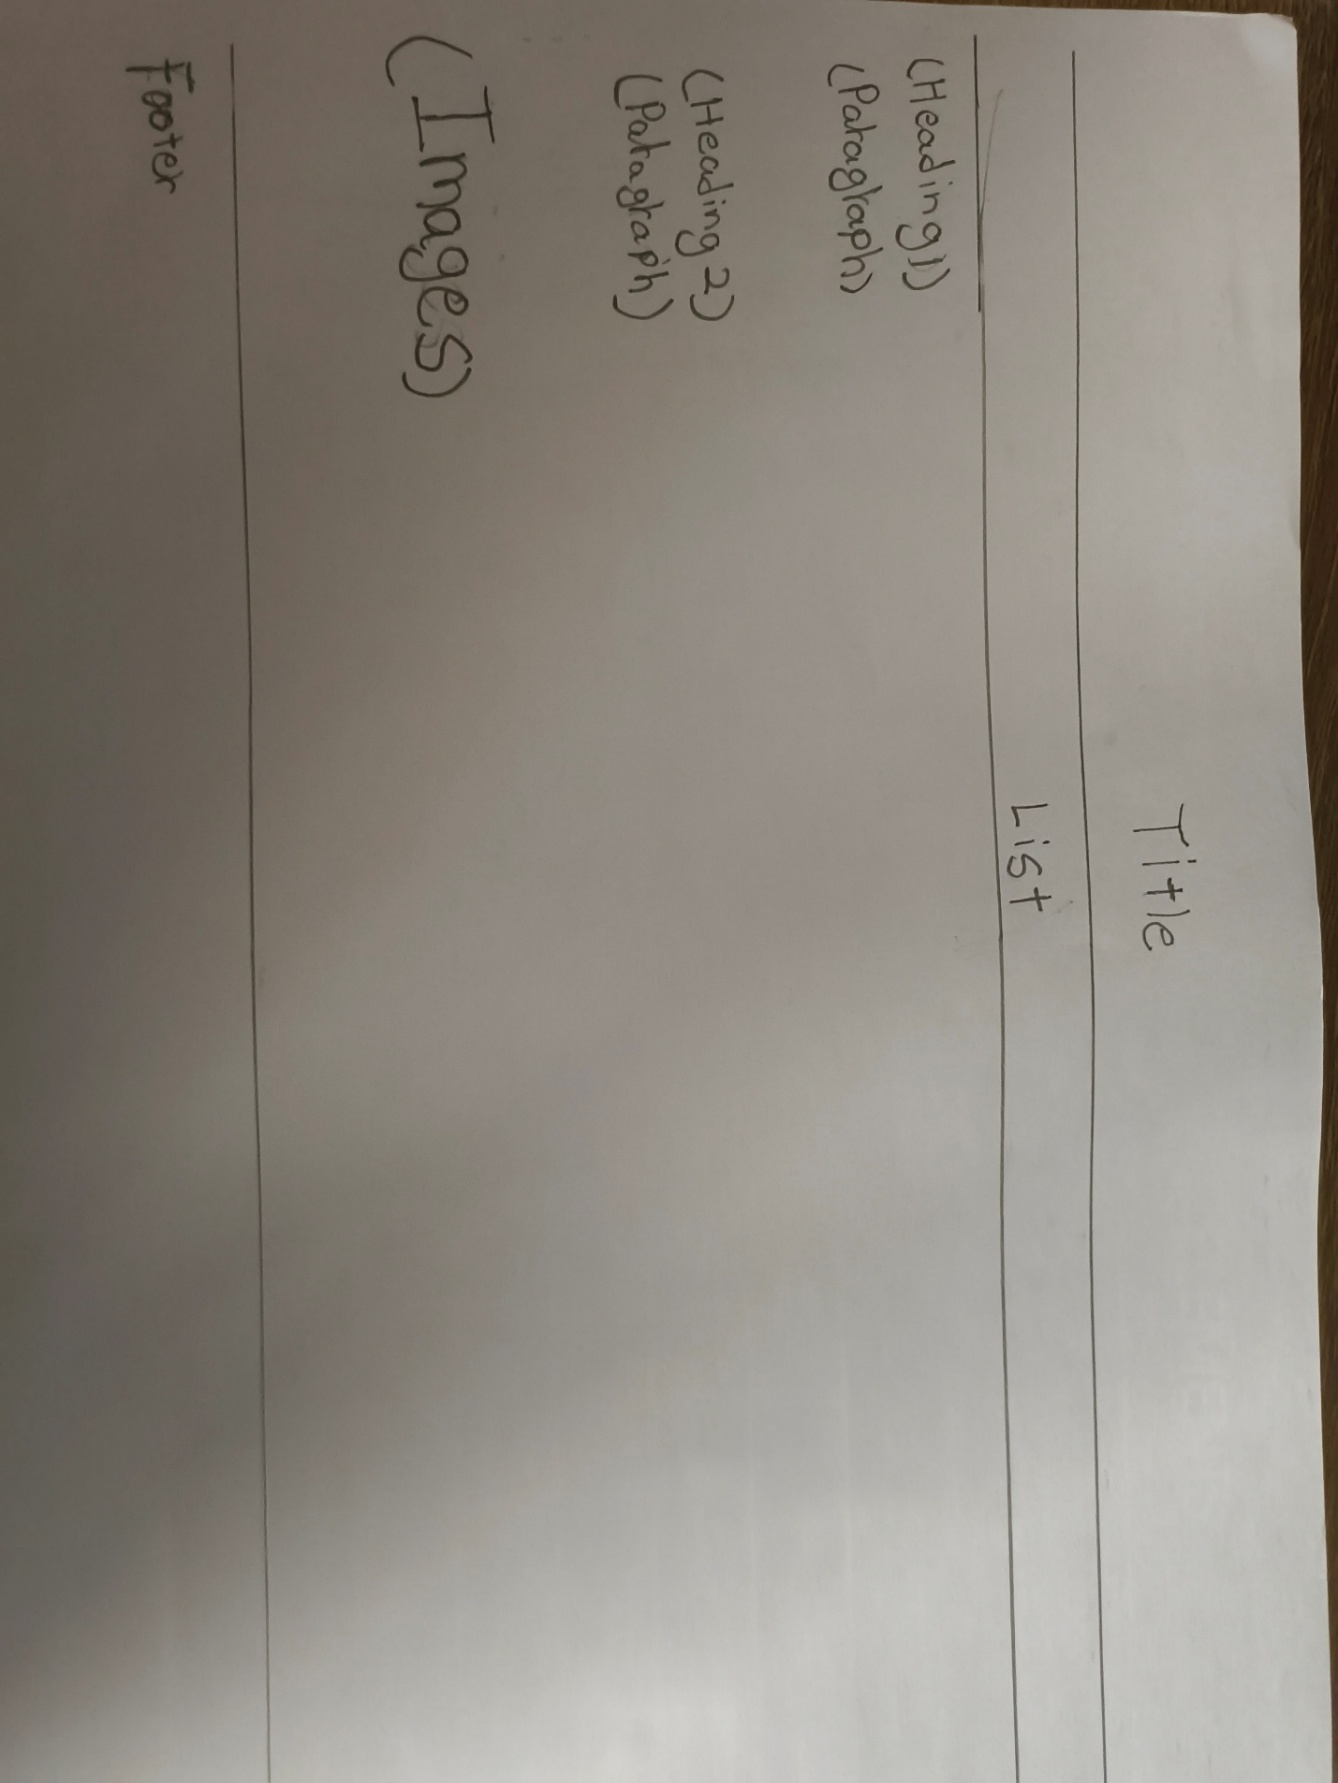 Title
List
(Heading1)
(Paragraph)
(Heading 2)
(Paragraph)
(Images)
Footer